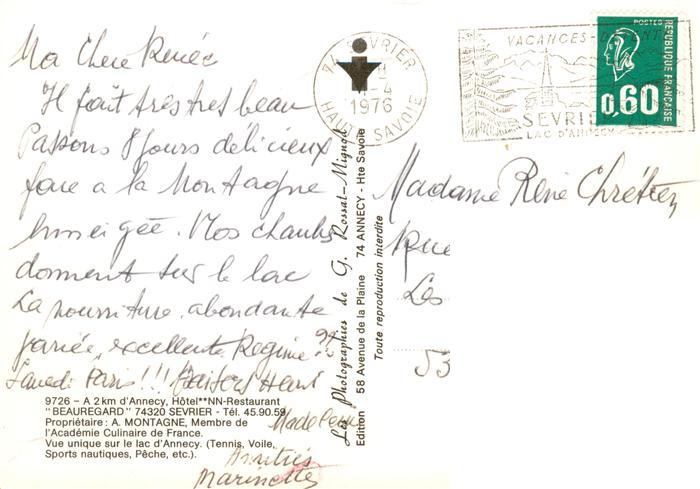 Ma Chere Renée
Il fait très tres beau
Passons 8 jours délicieux
face a la Montagne
enneigée. Nos chambres
donnent sur le lac
La nourriture abondante
variée, excellente Regime??
Samedi Paris!!! Baisers Henri
Madeleine
Amitiés
Marinette
9726 – A 2 km d'Annecy, Hôtel**NN-Restaurant
"BEAUREGARD" 74320 SEVRIER - Tél. 45.90.59
Propriétaire : A. MONTAGNE, Membre de
l'Académie Culinaire de France.
Vue unique sur le lac d'Annecy. (Tennis, Voile,
Sports nautiques, Pêche, etc.).
Les Photographies de G. Rossat-Mignod
Edition 58 Avenue de la Plaine 74 ANNECY - Hte Savoie
Toute reproduction interdite
74 SEVRIER
1976
HAUTE SAVOIE
VACANCES
SEVRIE
LAC D'ANNECY
POSTES
REPUBLIQUE FRANÇAISE
0,60
Madame René Chrétien
Rue
Les
53